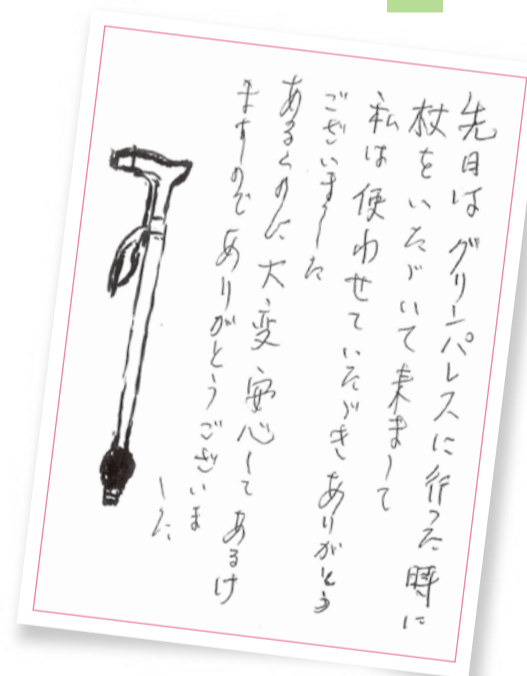 先日はグリーンパレスに行った時に
杖をいただいて来まして
私は使わせていただきありがとう
ございました
あるくのに大変安心してあるけ
ますのでありがとうございま
した